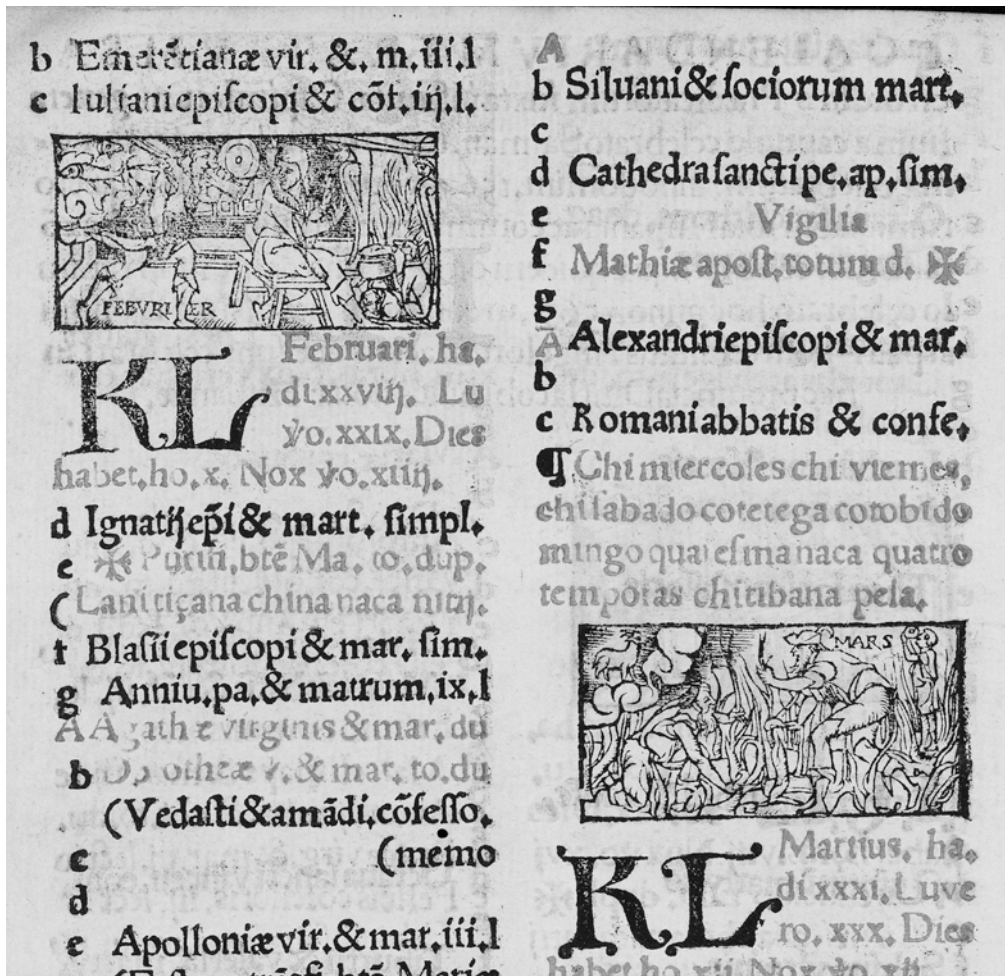 b Emerētianæ vir. & . m. iii. l
c Iuliani episcopi & cōf. iiij. l.
FEBVRIER
KL Februari. ha.
di. xxviij. Lu
ỽo. xxix. Dies
habet. ho. x. Nox ỽo. xiiij.
d Ignatij ep̄i & mart. simpl.
e ✠ Purifi. btē Ma. to. dup.
(Lanitiçana chinanaca nitij.
f Blasii episcopi & mar. sim.
g Anniu. pa. & matrum. ix. l
A Agathæ virginis & mar. du
b Dorotheæ v. & mar. to. du
(Vedasti & amādi. cōfesso.
c (memo
d
e Apolloniæ vir. & mar. iii. l
A
b Siluani & sociorum mart.
c
d Cathedra sancti pe. ap. sim.
e Vigilia
f Mathiæ apost. totum d. ✠
g
A Alexandri episcopi & mar.
b
c Romani abbatis & confe.
¶ Chi miercoles chi viernes,
chi sabado cotetega cotobi do
mingo quaresma naca quatro
temporas chitibana pela.
MARS
KL Martius. ha.
di xxxi. Luve
ro. xxx. Dies
habet ho. xii. Nox ỽo. xii.